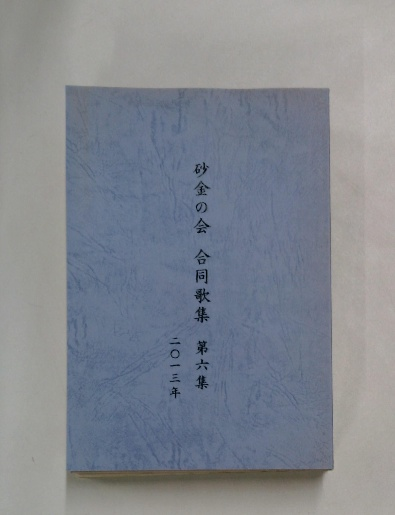 砂金の会 合同歌集 第六集
二〇一三年